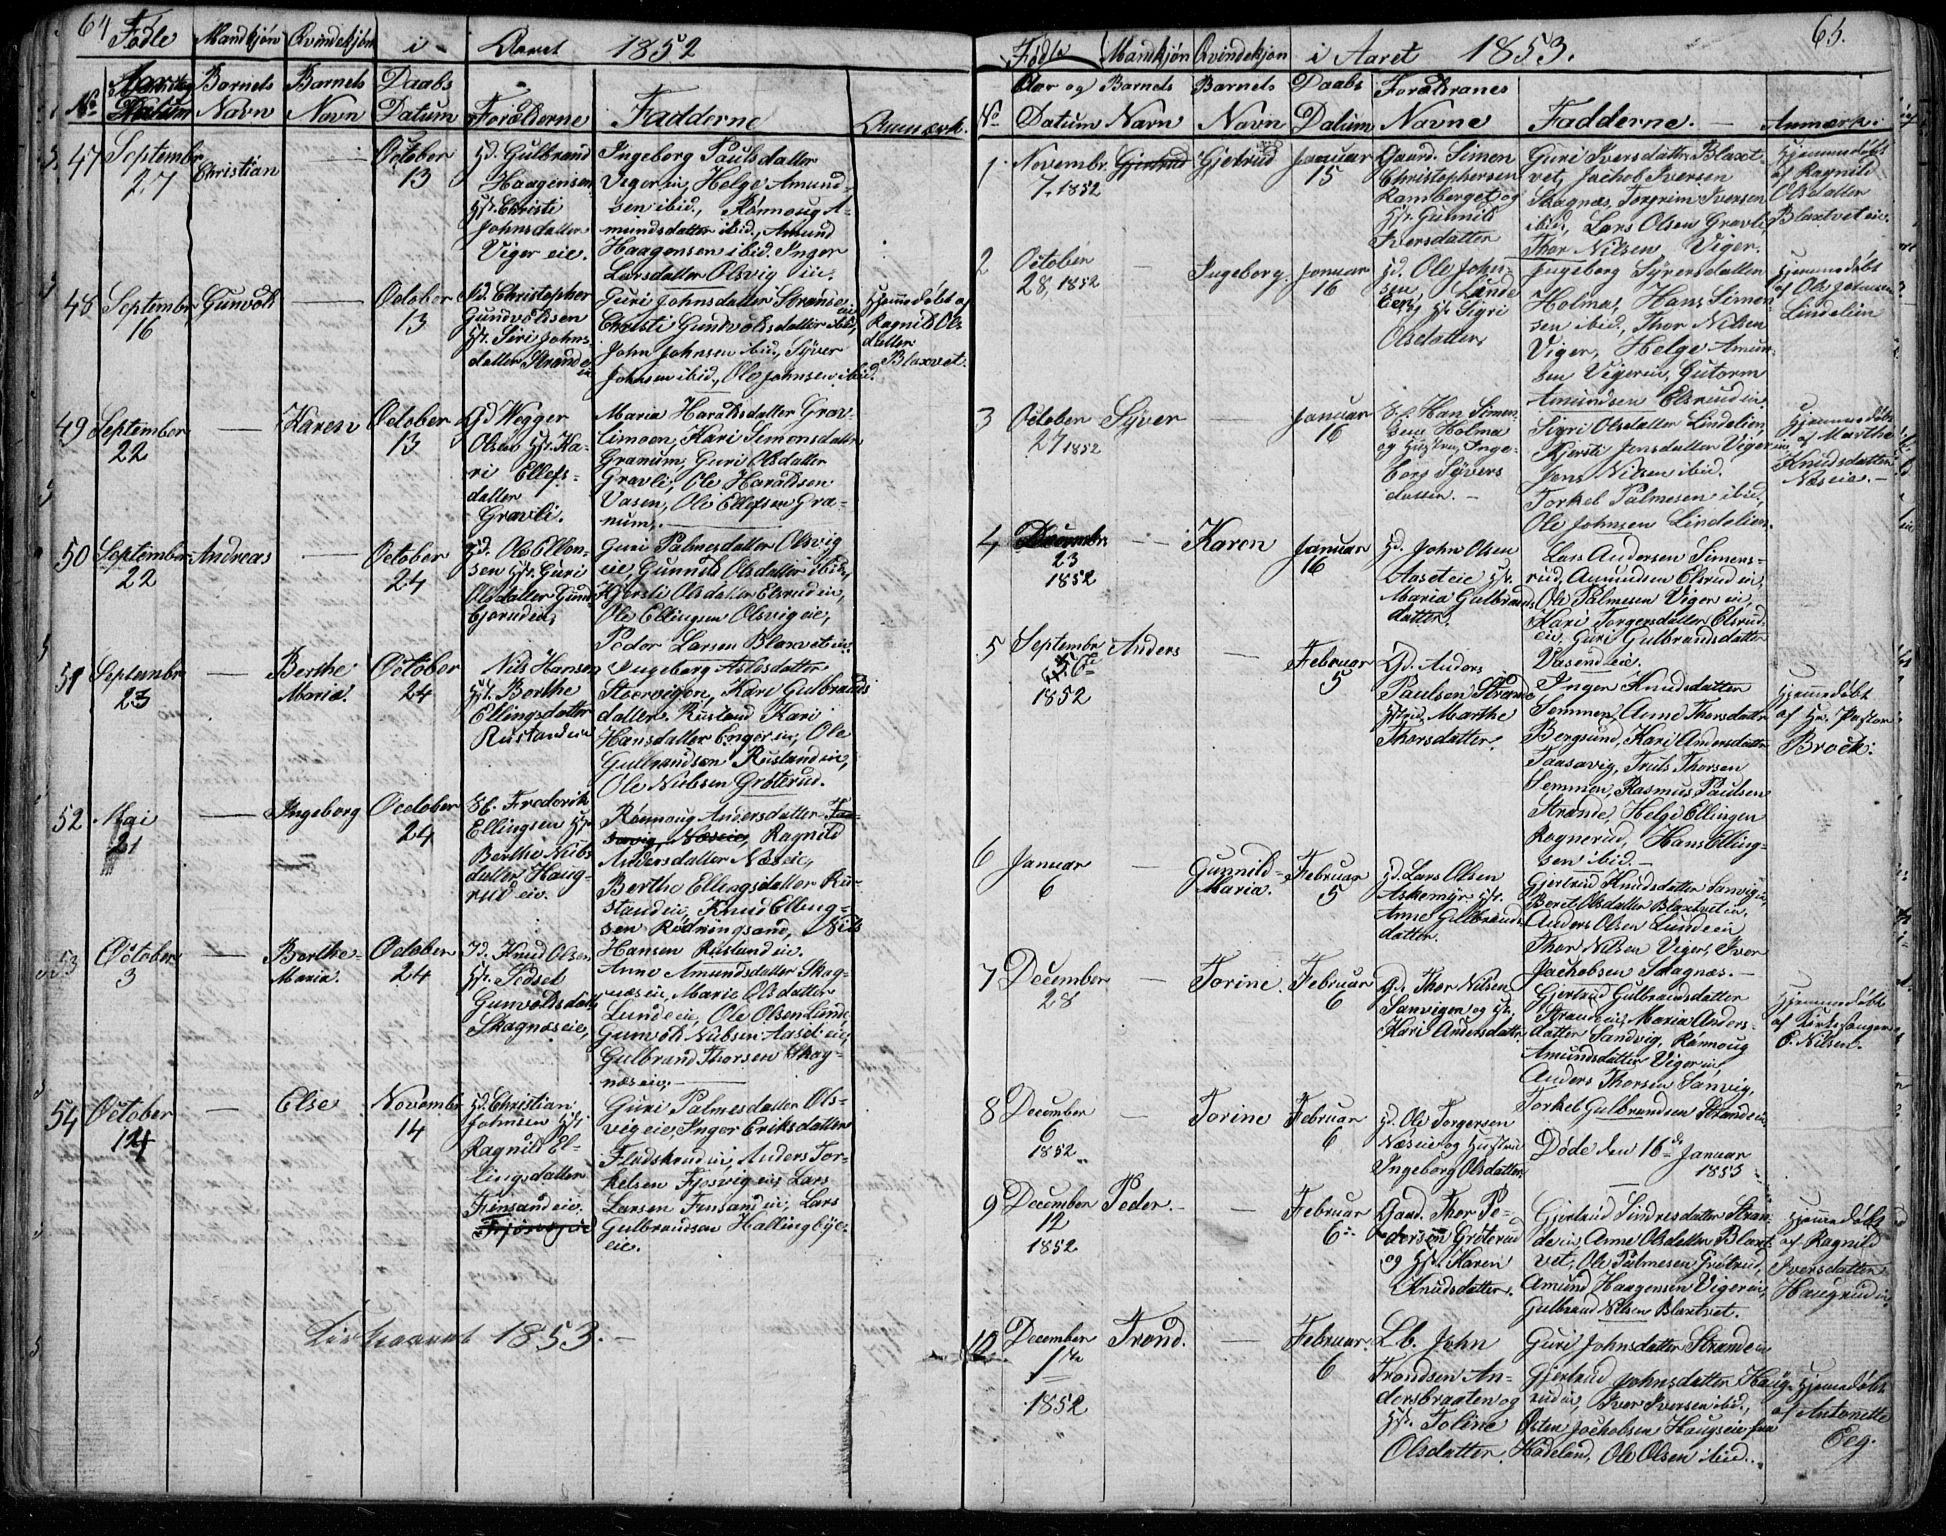 64
Fødte Mandkjøn Qvindekjøn i Aaret 1852
No Datum Barnets Navn Barnets Navn Daabs Datum Forælderne Fadderne Anmærk.
47 Septembr 27 Christian — October 13
Gd. Gulbrand
Haagensen
Hst. Christi
Johnsdatter
Viger eie.
Ingeborg Paulsdatter
Viger ein, Helge Amund-
sen ibid., Rønnoug A-
mundsdatter ibid., Amund
Haagensen ibid. Inger
Larsdatter Olsvig ein.
48 September 16 Gunvold — October 13
Id. Christopher
Gundvoldsen
Hst. Siri Johns-
datter Strande
Guri Johnsdatter Strande
Christi Gundvoldsdatter ibid,
John Johnsen ibid, Syver
Johnsen ibid., Ole Johnsen ibid.
Hjemmedøbt af
Ragnild Ols
datter
Blaxvet.
49 September 22 — Karen October 13
Gd Wegger
Olsen Hst. Ka-
ri Ellefs-
datter
Gravli.
Maria Haraldsdatter Grav-
limoen, Kari Simonsdatter
Granum, Guri Olsdatter
Gravli, Ole Haraldsen
Vasen, Ole Ellefsen Gra-
num.
50 September 22 Andreas — October 24
Id. Ole Ellen-
sen Hst. Guri
Olsdatter Gund-
bjørudein,
Guri Palmesdatter Olsvig
eie, Gunnild Olsdatter ibid,
Kjersti Olsdatter Elsrud ein,
Ole Ellingsen Olsvig eie,
Peder Larsen Blaxvet ein.
51 Septembr 23 — Berthe Maria. October 24
Nils Hansen
Hst. Berthe
Ellingsdatter
Rustand ein
Ingeborg Aslesdatter
Storvigen, Kari Gulbrands
datter Rustand Kari
Hansdatter Enger ein, Ole
Gulbrandsen Rustand ein,
Ole Nielsen Grøterud.
52 Mai 21 — Ingeborg October 24
Frederik
Ellingsen Hst
Berthe Niels
datter Haug-
rud eie.
Rønnoug Andersdatter
Næseie, Ragnild
Andersdatter Næseie,
Berthe Ellingsdatter Ru-
stand ein, Knud Elling-
sen Rødningsand, Nils
Hansen Rustand ein.
53 October 3 — Berthe Maria. October 24
Id. Knud Olsen
Hst. Sidsel
Gunvoldsdatt
Skagnæs eie,
Anne Amundsdatter Skag-
næs eie, Marie Olsdatter
Lunde eie, Ole Olsen Lunde,
Gunvold Nielsen Aaset eie,
Gulbrand Thorsen Skag-
næs eie.
54 October 14 — Else November 14
Id. Christian
Johnsen Hst
Ragnild El-
lingsdatter
Finsand eie.
Guri Palmesdatter Ols-
vig eie, Inger Eriksdatter
Fladskrud ein, Anders Tor-
kelsen Fjosvig ein, Lars
Larsen Finsand ein, Lars
Gulbrandsen Hallingbye
eie.
Kirkeaaret 1853. —
65.
Fødte Mandkjøn Qvindekjøn i Aaret 1853.
No Aar og Datum Barnets Navn Barnets Navn Daabs Datum Forældrenes Navne Fadderne. — Anmærk:
1 Novembr. 7. 1852 Gjertrud Gjertrud Januar 15
Gaard. Simen
Christophersen
Ramberget og
Hst. Gunild
Iversdatter
Guri Iversdatter Blaxt-
vet, Jachob Iversen
Skagnæs, Torgrim Iversen
ibid, Lars Olsen Gravli
Thor Nilsen Viger.
Hjemmedøbt
af Ragnild
Olsdatter
Blaxtvet eie.
2 October 28, 1852 — Ingeborg Januar 16
Gd. Ole John-
sen, Linde
lien, Hst Sigri
Olsdatter
Ingeborg Syversdatter
Holma, Hans Simon-
sen ibid, Thor Nilsen
Viger, Helge Amun-
sen Vigerein, Gutorm
Amundsen Elsrud ein
Hjemmedøbt
af Ole Johnsen
Lindelien
3 October 27 1852 Syver — Januar 16
Han Simon-
sen Holma
og Hustru Inge-
borg Syvers
datter. —
Sigri Olsdatter Lindelien
Kjersti Jensdatter Viger ein
Jens Nilsen ibid.
Torkel Palmesen ibid.
Ole Johnsen Lindelien.
Hjemmedøbt
af Marthe
Knudsdatter
Næs eie. —
4 Decembr 23 1852 — Karen Januar 16
Id. John Olsen
Aaset eie Hst.
Maria Gulbrands
datter.
Lars Andersen Simens-
rud, Amundsen Elsrud ein,
Ole Palmesen Viger ein,
Kari Torgersdatter Elsrud
ein, Guri Gulbrandsdatter
Vasend eie.
5 Septembr 1852 Anders — Februar 5
Gd. Anders
Paulsen Strande
Hstru, Marthe
Thorsdatter.
Inger Knudsdatter
Semmen, Anne Thorsdatter
Bergsund, Kari Andersdatter
Taasavig, Truls Thorsen
Semmen, Rasmus Paulsen
Strande, Helge Ellingen
Rognerud, Hans Elling-
sen ibid. —
Hjemmedøbt
af Hr. Pastor
Brock.
6 Januar 6 — Gunnild Maria. Februar 5
Id. Lars Olsen
Askemyr Hst.
Anne Gulbrands
datter.
Gjertrud Knudsdatter Sanvig,
Beret Olsdatter Blaxtvet ein,
Anders Olsen Lunde ein
Thor Nilsen Viger, Iver
Jachobsen Skagnæs. —
7 December 28 — Torine Februar 6
Gd. Thor Nilsen
Sanvigen og Hst
Kari Andersdatter
Gjertrud Gulbrandsdatter
Strande eie, Maria Anders-
datter Sandvig, Rønnoug
Amundsdatter Viger ein
Anders Thorsen Sanvig,
Torkel Gulbrandsen Strande ein
Hjemmedøbt
af Kirkesanger
O. Nilsen.
8 December 6 1852 — Torine Februar 6
Id. Ole Torgersen
Næs eie og Hustru
Ingeborg Olsdatter.
Døde den 16de Januar
1853
9 December 12 1852 Peder. — Februar 6
Gaad. Thor Pe-
dersen Grøterud
og Hst. Karen
Knudsdatter.
Gjertrud Sindresdatter Stran-
de ein Anne Olsdatter Blaxt-
vet, Ole Palmesen Grøtrud,
Amund Haagensen Viger ein,
Gulbrand Nilsen Blaxtvet.
Hjemmedøbt
af Ragnild
Iversdatter
Haugrud ein.
10 December 1ste 1852 Trond. — Februar 6
Lb. John
Trondsen An-
dersbraaten og
Hst. Toline
Olsdatter
Guri Johnsdatter Strande ein
Gjertrud Johnsdatter Haug-
rud ein, Iver Iversen ibid,
Osten Jachobsen Haugs eie fra
Hadeland, Ole Olsen ibid.
Hjemmedøbt
af Antonette
Eeg.